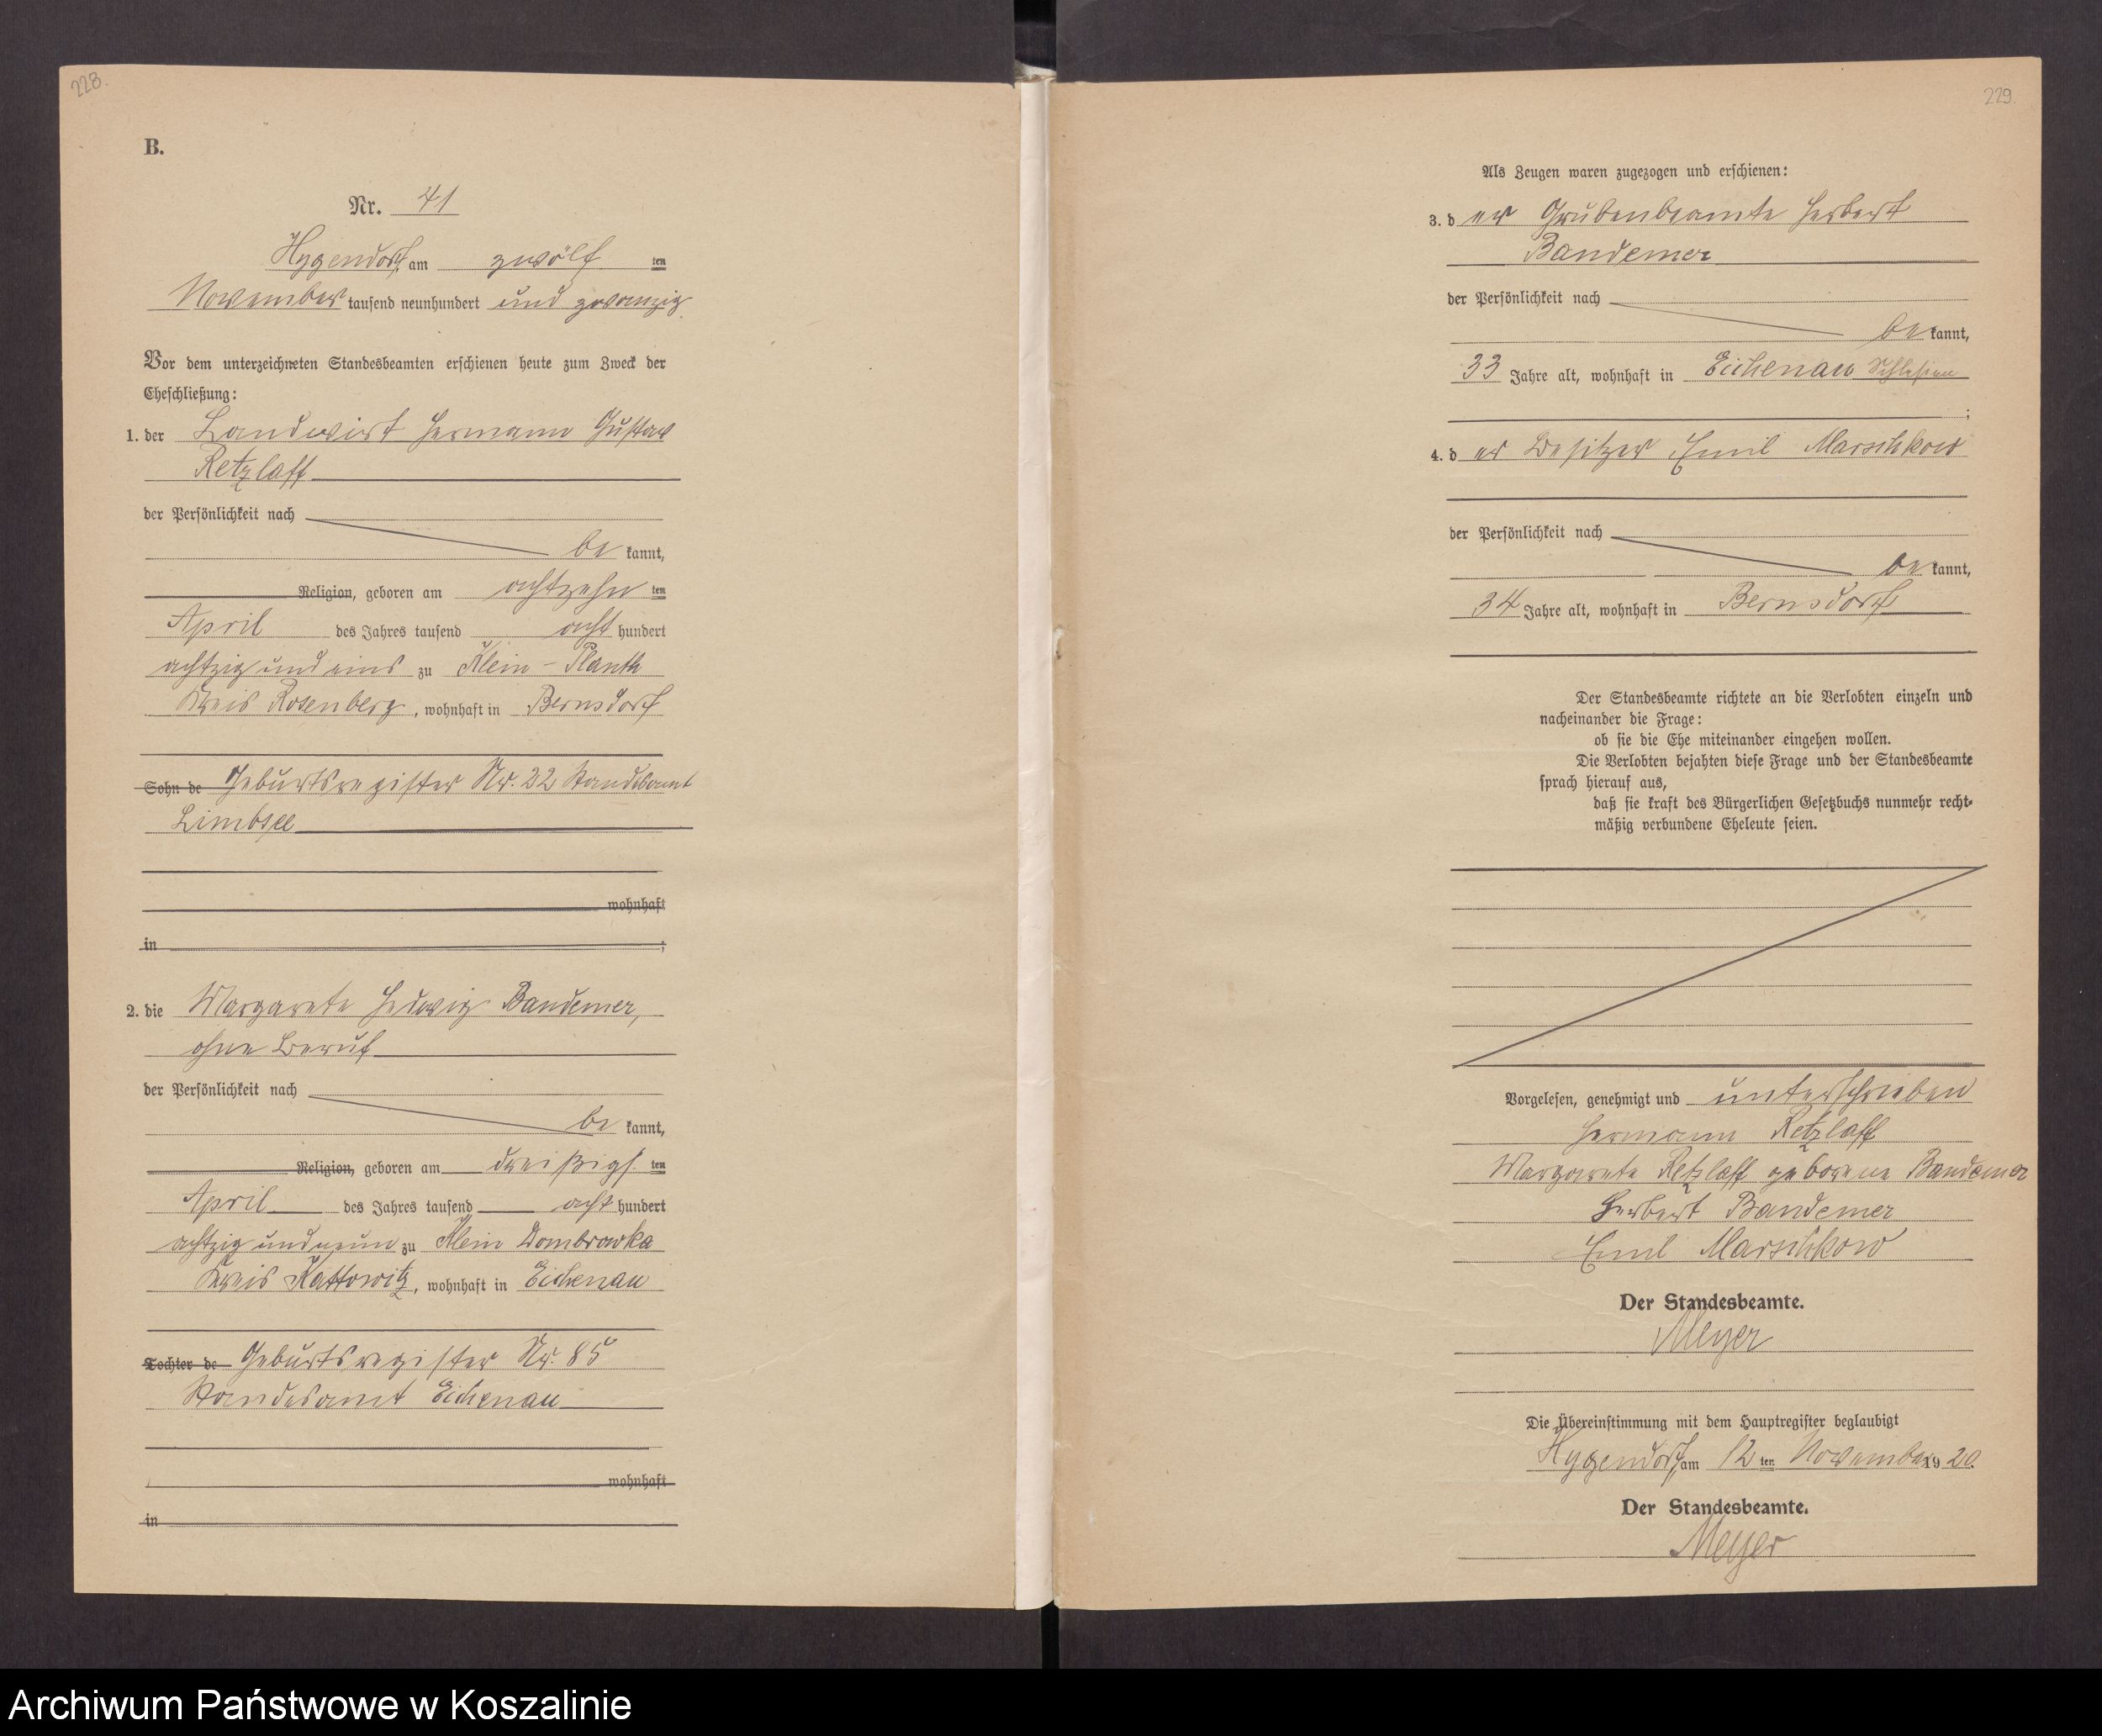 228.
B.
Nr. 41
Hygendorf, am zwölf ten
November tausend neunhundert und zwanzig.
Vor dem unterzeichneten Standesbeamten erschienen heute zum Zweck der
Eheschließung:
1. der Landwirt Hermann Gustav
Retzlaff
der Persönlichkeit nach
be kannt,
Religion, geboren am achtzehn ten
April des Jahres tausend acht hundert
achtzig und eins zu Klein-Planth
Kreis Rosenberg, wohnhaft in Bernsdorf
Sohn de Geburtsregister Nr. 22 Standesamt
Limbsee
wohnhaft
in ;
2. die Margarete Hedwig Bandemer,
ohne Beruf
der Persönlichkeit nach
be kannt,
Religion, geboren am dreißigs. ten
April des Jahres tausend acht hundert
achtzig und neun zu Klein Dombrowka
Kreis Kattowitz, wohnhaft in Eichenau
Tochter de Geburtsregister Nr. 85
Standesamt Eichenau
wohnhaft
in
229.
Als Zeugen waren zugezogen und erschienen:
3. d er Grubenbeamte Herbert
Bandemer
der Persönlichkeit nach
be kannt,
33 Jahre alt, wohnhaft in Eichenau Schlesien
;
4. d er Besitzer Emil Marschkow
der Persönlichkeit nach
be kannt,
34 Jahre alt, wohnhaft in Bernsdorf
Der Standesbeamte richtete an die Verlobten einzeln und
nacheinander die Frage:
ob sie die Ehe miteinander eingehen wollen.
Die Verlobten bejahten diese Frage und der Standesbeamte
sprach hierauf aus,
daß sie kraft des Bürgerlichen Gesetzbuchs nunmehr recht-
mäßig verbundene Eheleute seien.
Vorgelesen, genehmigt und unterschrieben
Hermann Retzlaff
Margarete Retzlaff geborene Bandemer
Herbert Bandemer
Emil Marschkow
Der Standesbeamte.
Meyer
Die Übereinstimmung mit dem Hauptregister beglaubigt
Hygendorf, am 12 ten November 19 20.
Der Standesbeamte.
Meyer
Archiwum Państwowe w Koszalinie